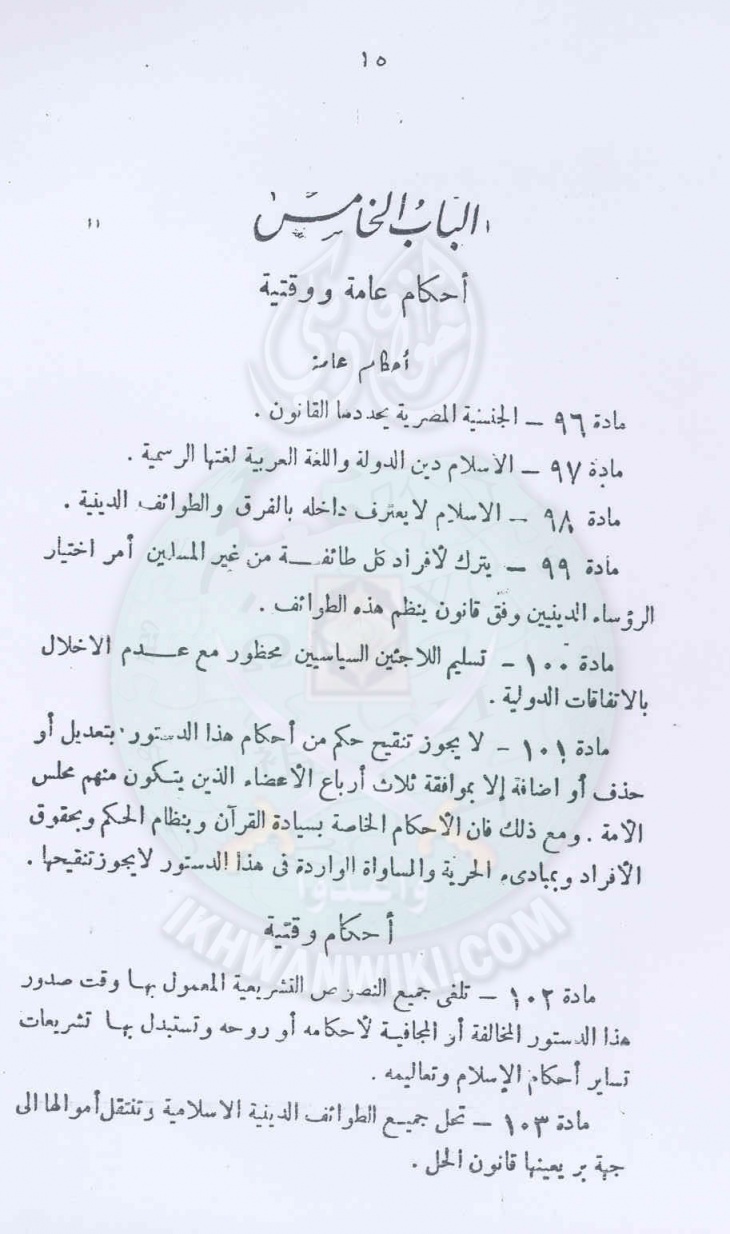 ١٥
الباب الخامس
أحكام عامة ووقتية
أحكام عامة
مادة ٩٦ – الجنسية المصرية يحددها القانون .
مادة ٩٧ – الاسلام دين الدولة واللغة العربية لغتها الرسمية .
مادة ٩٨ – الاسلام لا يعترف داخله بالفرق والطوائف الدينية .
مادة ٩٩ – يترك لأفراد كل طائفة من غير المسلمين أمر اختيار
الرؤساء الدينيين وفق قانون ينظم هذه الطوائف .
مادة ١٠٠ – تسليم اللاجئين السياسيين محظور مع عدم الاخلال
بالاتفاقات الدولية .
مادة ١٠١ – لا يجوز تنقيح حكم من أحكام هذا الدستور بتعديل أو
حذف أو اضافة إلا بموافقة ثلاث أرباع الأعضاء الذين يتكون منهم مجلس
الأمة . ومع ذلك فان الأحكام الخاصة بسيادة القرآن وبنظام الحكم وبحقوق
الأفراد وبمبادىء الحرية والمساواة الواردة فى هذا الدستور لا يجوز تنقيحها .
أحكام وقتية
مادة ١٠٢ – تلغى جميع النصوص التشريعية المعمول بها وقت صدور
هذا الدستور المخالفة أو المجافية لأحكامه أو روحه وتستبدل بها تشريعات
تساير أحكام الإسلام وتعاليمه .
مادة ١٠٣ – تحل جميع الطوائف الدينية الاسلامية وتنتقل أموالها الى
جهة بر يعينها قانون الحل .
وأعدوا
IKHWANWIKI.COM